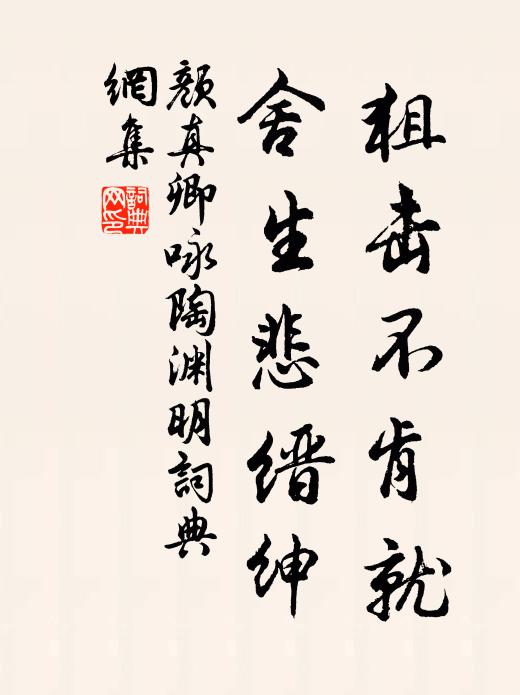 狙击不肯就
舍生悲缙绅
颜真卿咏陶渊明詞典
網集
詞典网印